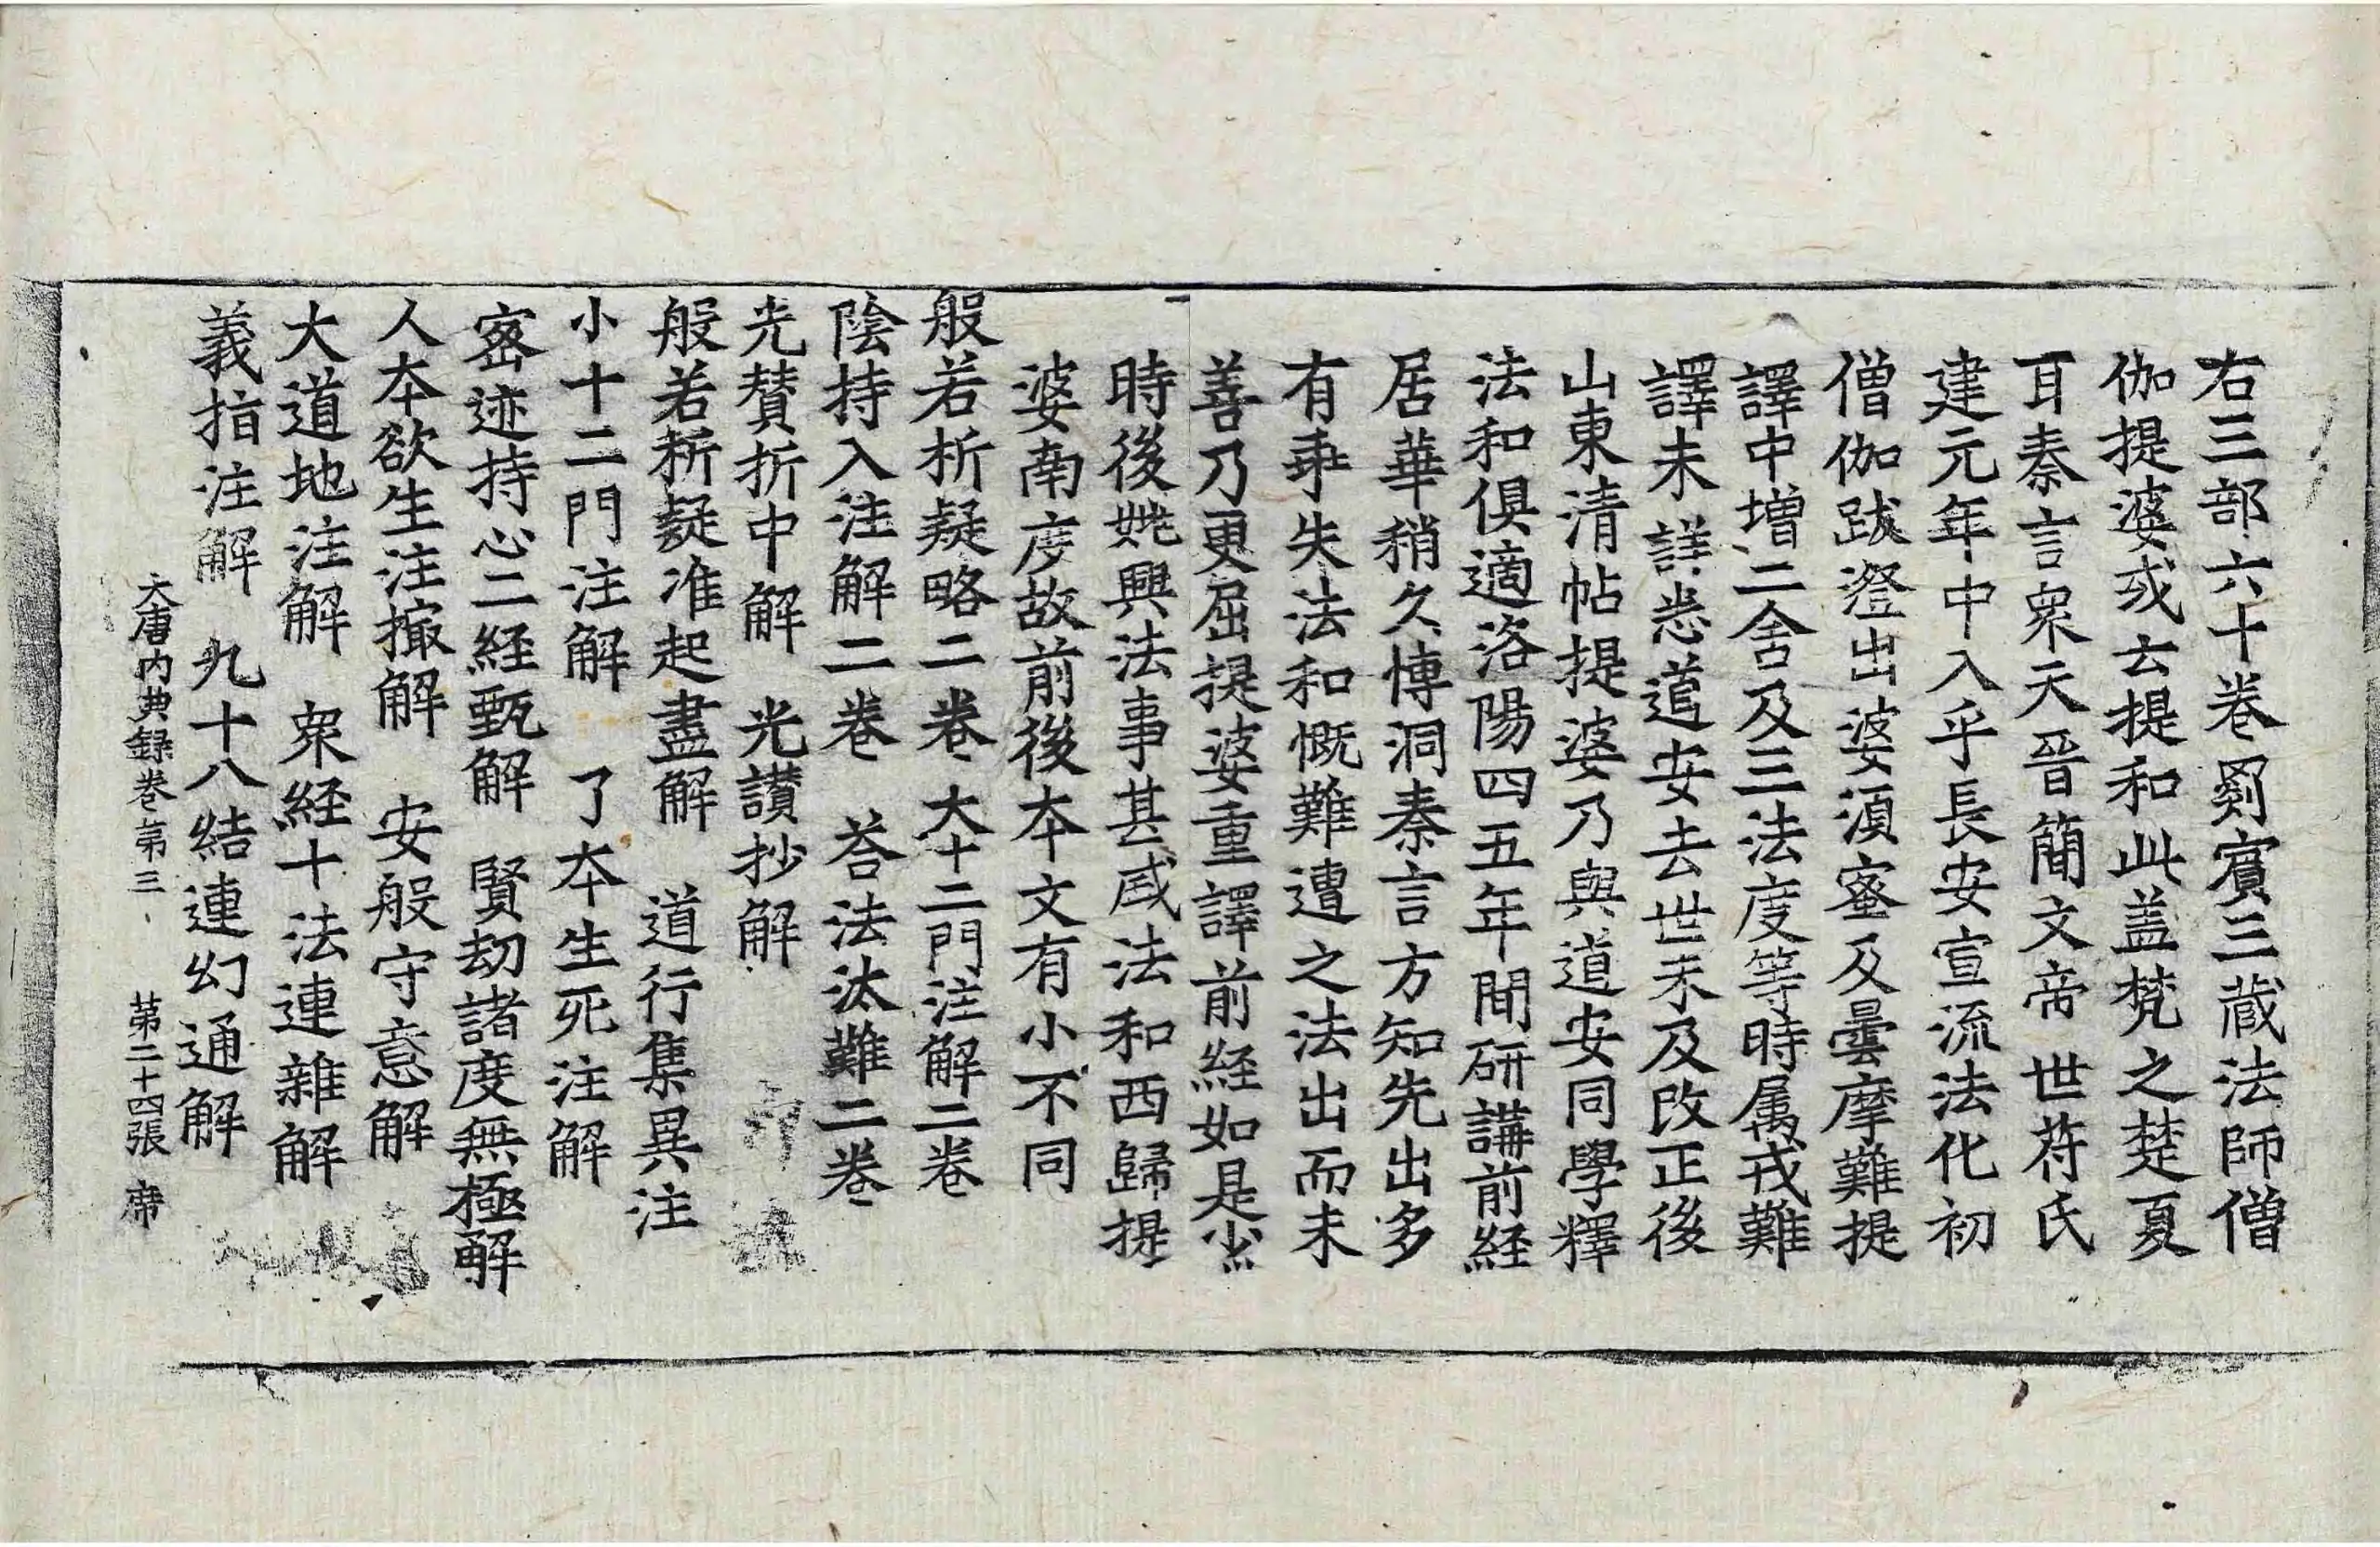 右三部六十卷罽賓三藏法師僧
伽提婆或云提和此盖梵之楚夏
耳秦言衆天晉簡文帝世苻氏
建元年中入乎長安宣流法化初
僧伽跋澄出婆湏蜜及曇摩難提
譯中增二含及三法度等時属戎難
譯未詳悉道安去世未及改正後
山東清怗提婆乃與道安同學釋
法和俱適洛陽四五年間研講前経
居華稍久博洞秦言方知先出多
有乖失法和慨難遭之法出而未
善乃更屈提婆重譯前経如是少
時後姚興法事甚盛法和西歸提
婆南度故前後本文有小不同
般若析疑略二卷 大十二門注解二卷
陰持入注解二卷 荅法汰難二卷
光賛折中解 光讃抄解
般若析疑准起盡解 道行集異注
小十二門注解 了本生死注解
密迹持心二経甄解 賢劫諸度無極解
人本欲生注撮解 安般守意解
大道地注解 衆経十法連雜解
義指注解 九十八結連幻通解
大唐内典録卷第三 第二十四張 席